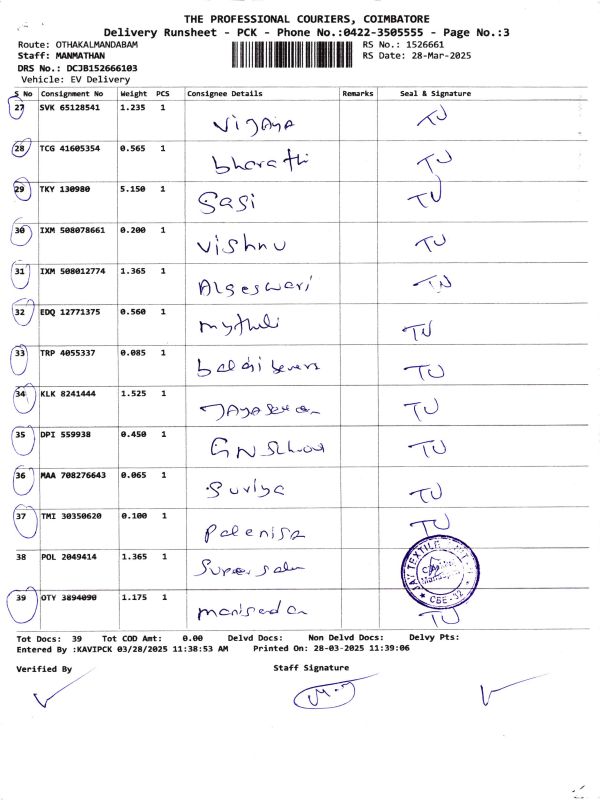 THE PROFESSIONAL COURIERS, COIMBATORE
Delivery Runsheet - PCK - Phone No.:0422-3505555 - Page No.:3
Route: OTHAKALMANDABAM RS No.: 1526661
Staff: MANMATHAN RS Date: 28-Mar-2025
DRS No.: DCJB152666103
Vehicle: EV Delivery
S No Consignment No Weight PCS Consignee Details Remarks Seal & Signature
27 SVK 65128541 1.235 1 Vijaya TU
28 TCG 41605354 0.565 1 bharathi TU
29 TKY 130980 5.150 1 Sasi TU
30 IXM 508078661 0.200 1 Vishnu TU
31 IXM 508012774 1.365 1 TU
32 EDQ 12771375 0.560 1 mythili TU
33 TRP 4055337 0.085 1 TU
34 KLK 8241444 1.525 1 TU
35 DPI 559938 0.450 1 GN School TU
36 MAA 708276643 0.065 1 Suriya TU
37 TMI 30350620 0.100 1 TU
38 POL 2049414 1.365 1 JAY TEXTILE CBE-32
39 OTY 3894090 1.175 1 TU
Tot Docs: 39 Tot COD Amt: 0.00 Delvd Docs: Non Delvd Docs: Delvy Pts:
Entered By :KAVIPCK 03/28/2025 11:38:53 AM Printed On: 28-03-2025 11:39:06
Verified By Staff Signature